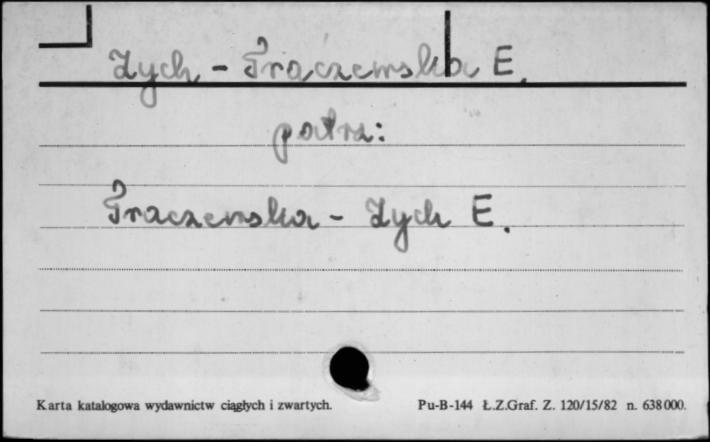 Zych - Traczewska E.
patrz:
Traczewska - Zych E.
Karta katalogowa wydawnictw ciągłych i zwartych. Pu-B-144 Ł.Z.Graf. Z. 120/15/82 n. 638000.